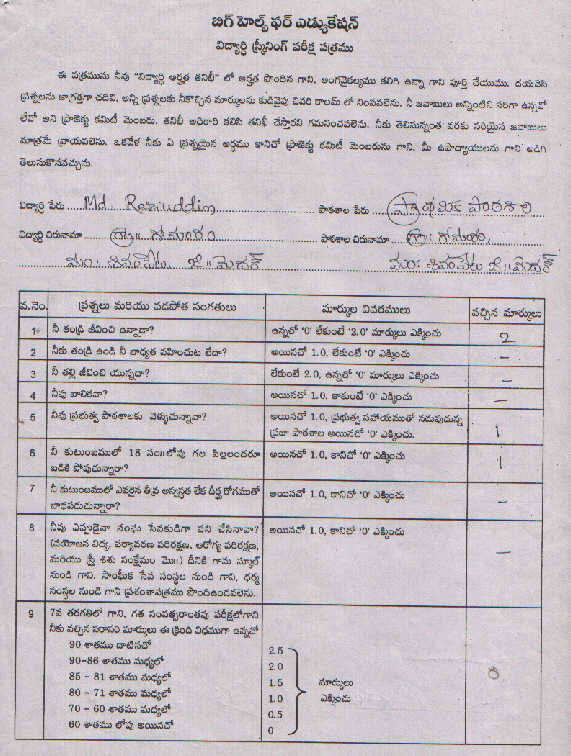 బిగ్ హెల్ప్ ఫర్ ఎడ్యుకేషన్
విద్యార్థి స్క్రీనింగ్ పరీక్ష పత్రము
ఈ పత్రమును నీవు "విద్యార్థి అర్హత తనిఖీ" లో అర్హత పొందిన గాని, అంగవైకల్యము కలిగి ఉన్నా గాని పూర్తి చేయుము. దయచేసి
ప్రశ్నలను జాగ్రత్తగా చదివి, అన్ని ప్రశ్నలకు నీకొచ్చిన మార్కులను కుడివైపు చివరి కాలమ్ లో నింపవలెను. నీ జవాబులు అన్నింటిని సరిగా ఉన్నవో
లేవో అని ప్రాజెక్టు కమిటీ మెంబరు, తనిఖీ అధికారి కలిసి తనిఖీ చేస్తారని గమనించవలెను. నీకు తెలిసినంత వరకు సరియైన జవాబులు
మాత్రమే వ్రాయవలెను. ఒకవేళ నీకు ఏ ప్రశ్నయైన అర్థము కానిచో ప్రాజెక్టు కమిటీ మెంబరును గాని, మీ ఉపాధ్యాయులను గాని అడిగి
తెలుసుకొనవచ్చును.
విద్యార్థి పేరు Md. Raziuddin పాఠశాల పేరు ప్రాథమిక పాఠశాల
విద్యార్థి చిరునామా గ్రా॥ గోమారం పాఠశాల చిరునామా గ్రా॥ గోమారం
మం: శివంపేట జి॥ మెదక్ మం: శివంపేట జి॥ మెదక్
వ.నెం. ప్రశ్నలు మరియు వడపోత సంగతులు మార్కుల వివరములు వచ్చిన మార్కులు
1 నీ తండ్రి జీవించి ఉన్నాడా? ఉన్నచో '0' లేకుంటే '2.0' మార్కులు ఎక్కించు 2
2 నీకు తండ్రి ఉండి నీ బాధ్యత వహించుట లేదా? అయినచో 1.0, లేకుంటే '0' ఎక్కించు –
3 నీ తల్లి జీవించి యున్నదా? లేకుంటే 2.0, ఉన్నచో '0' మార్కులు ఎక్కించు –
4 నీవు బాలికవా? అయినచో 1.0, కాకుంటే '0' ఎక్కించు –
5 నీవు ప్రభుత్వ పాఠశాలకు వెళ్ళుచున్నావా? అయినచో 1.0, ప్రభుత్వ సహాయముతో నడుపుచున్న
ప్రైవేటు పాఠశాల అయినచో '0' ఎక్కించు. 1
6 నీ కుటుంబములో 18 సం॥లోపు గల పిల్లలందరూ
బడికి పోవుచున్నారా? అయినచో 1.0, కానిచో '0' ఎక్కించు 1
7 నీ కుటుంబములో ఎవరైన తీవ్ర అస్వస్థత లేక దీర్ఘ రోగముతో
బాధపడుచున్నారా? అయినచో 1.0, కానిచో '0' ఎక్కించు –
8 నీవు ఎప్పుడైనా సంఘ సేవకుడిగా పని చేసినావా? అయినచో 1.0, కానిచో '0' ఎక్కించుడి
(వయోజన విద్య, పర్యావరణ పరిరక్షణ, ఆరోగ్య పరిరక్షణ,
మరియు స్త్రీ శిశు సంక్షేమం మొ॥) దీనికి గాను స్కూల్
నుండి గాని, సాంఘిక సేవ సంస్థల నుండి గాని, ధర్మ
సంస్థల నుండి గాని ప్రశంశాపత్రము పొందిఉండవలెను. –
9 7వ తరగతిలో గాని, గత సంవత్సరాంతపు పరీక్షలోగాని
నీకు వచ్చిన సరాసరి మార్కులు ఈ క్రింది విధముగా ఉన్నచో
90 శాతము దాటినచో 2.5
90-86 శాతము మధ్యలో 2.0
85 - 81 శాతము మధ్యలో 1.5 మార్కులు
80 - 71 శాతము మధ్యలో 1.0 ఎక్కించు
70 - 60 శాతము మధ్యలో 0.5
60 శాతము లోపు అయినచో 0